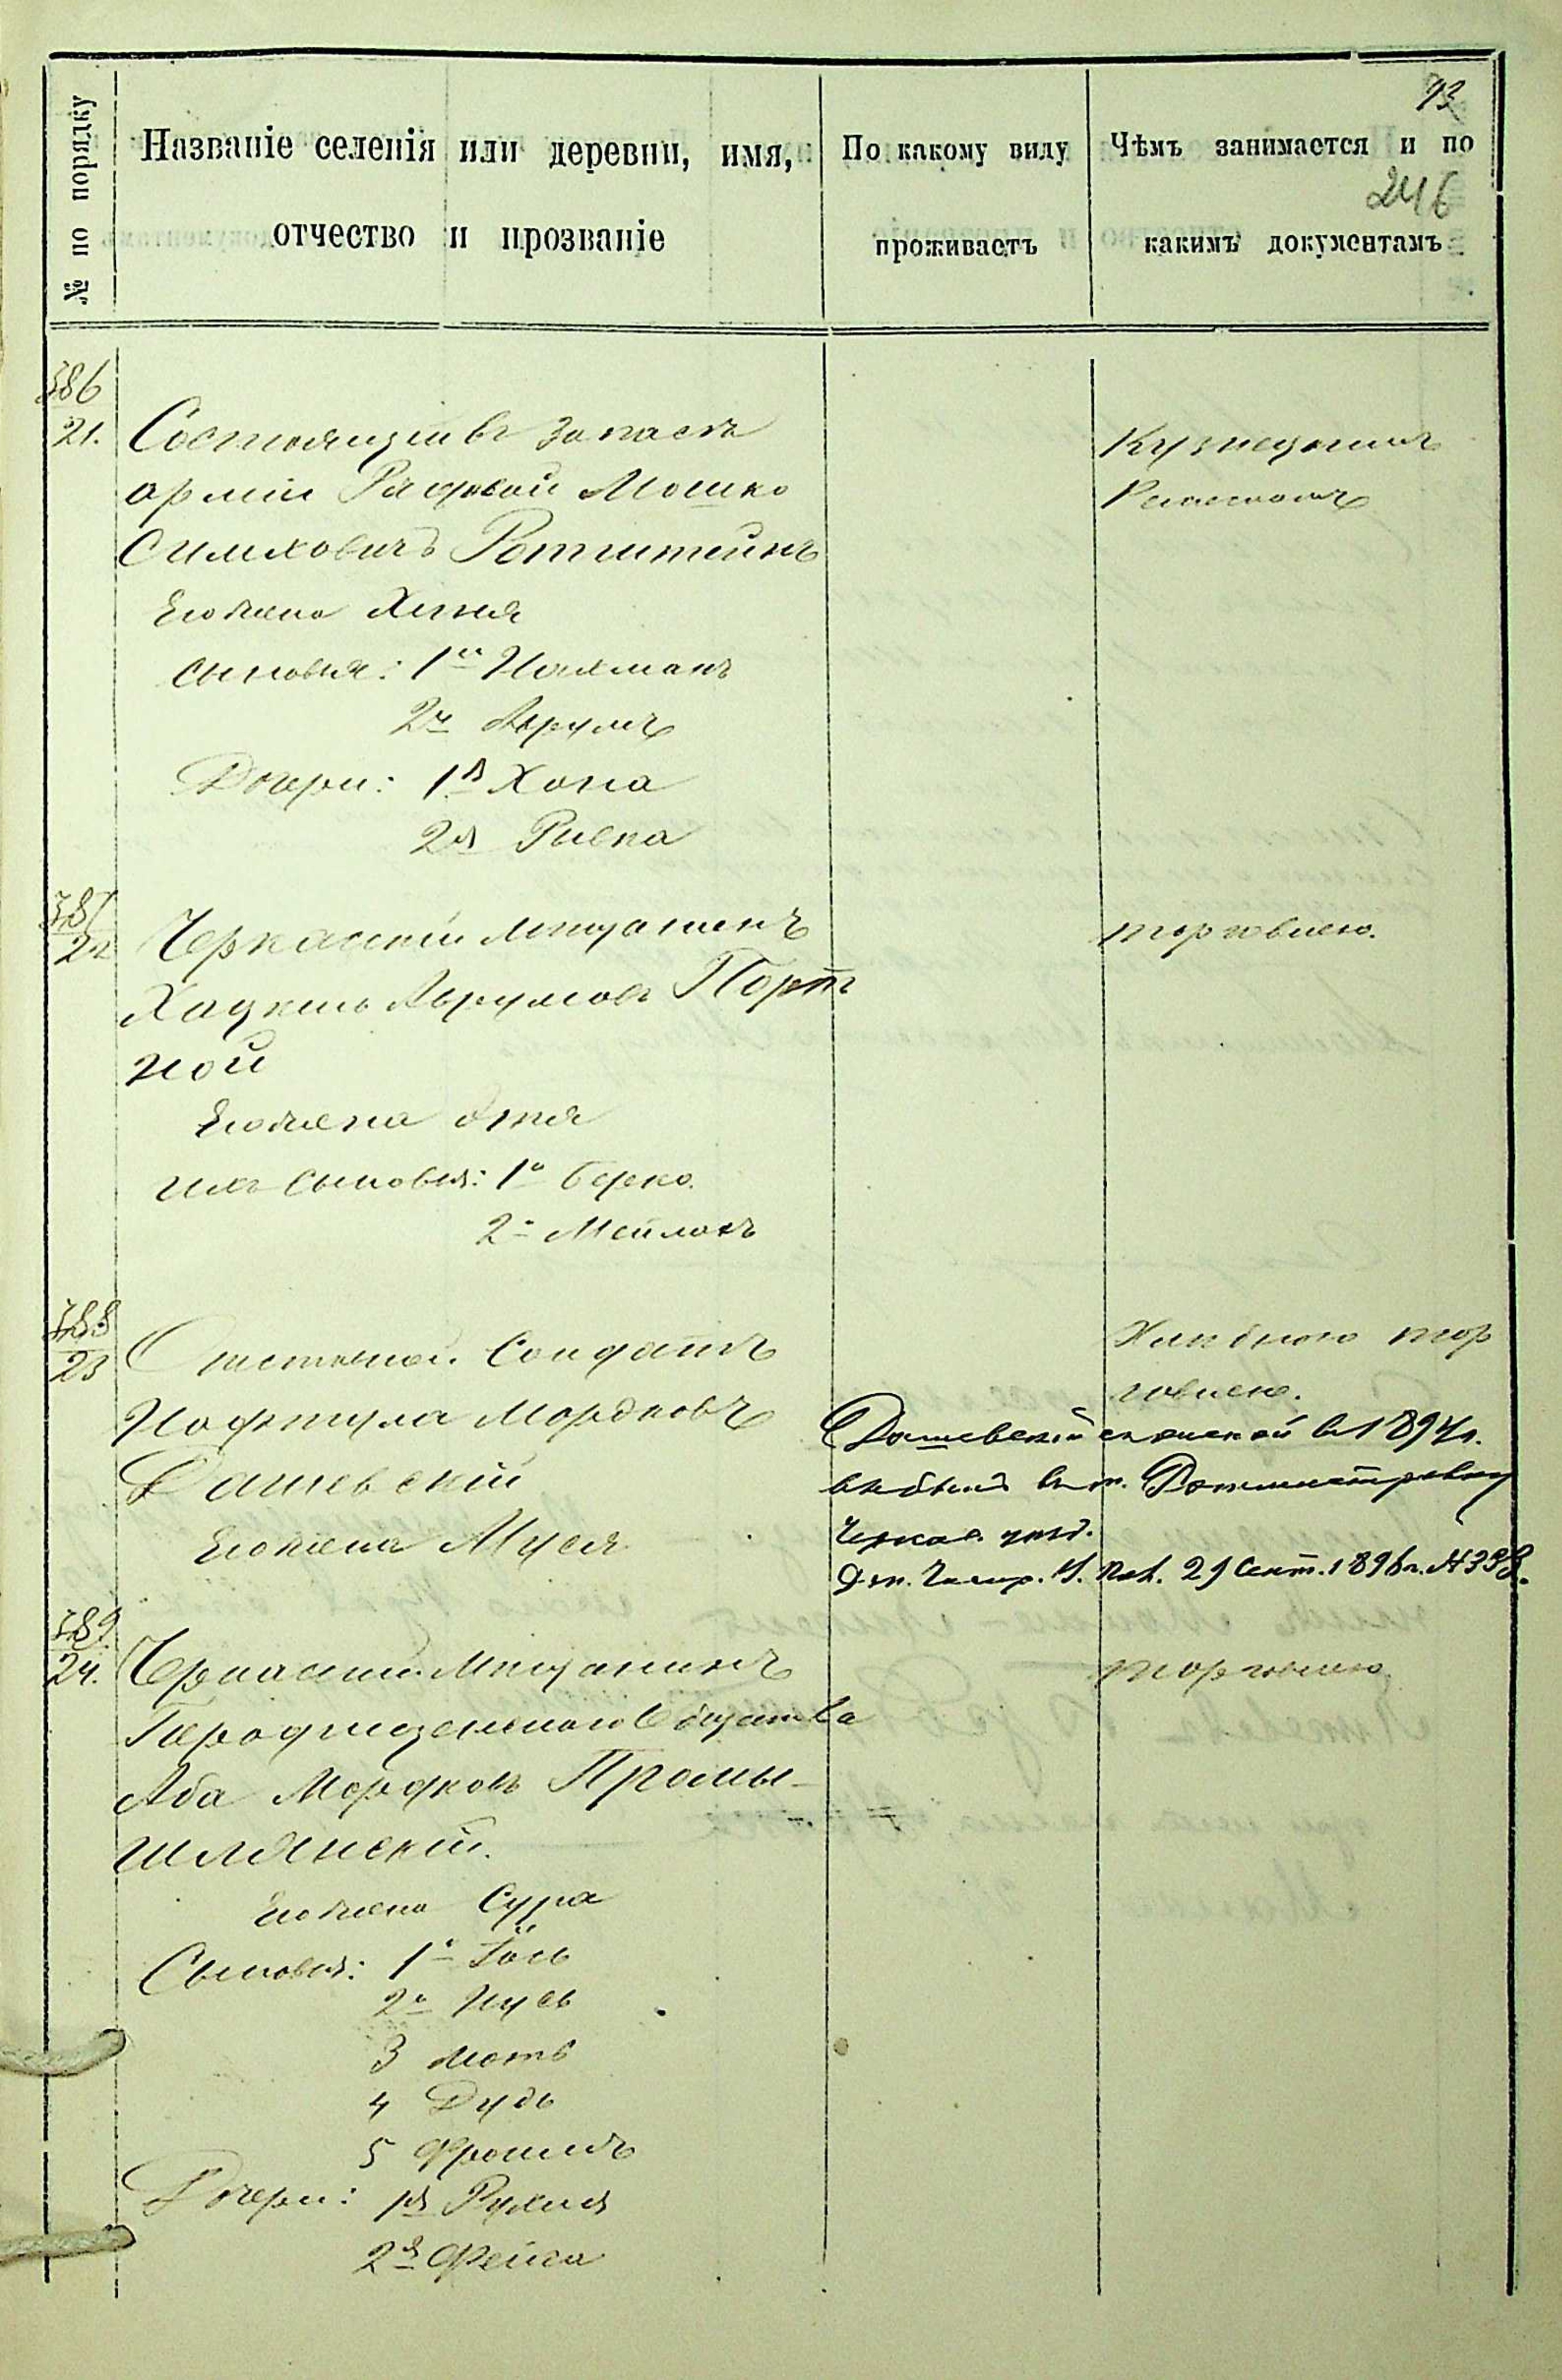 93
246
№ по порядку
Названіе селенія или деревни, имя,
отчество и прозваніе
По какому виду
проживаетъ
Чѣмъ занимается и по
какимъ документамъ
386
21.
Состоящій въ запасѣ
арміи Рядовой Мошко
Симховичъ Ротштейнъ
Его жена Хиня
сыновья: 1й Нахманъ
2й Аврумъ
Дочери: 1я Хона
2я Ривка
Кузнечнымъ
387
22
Черкасскій мѣщанинъ
Хацкель Аврумовъ Порт
ной
Его жена
ихъ сыновья: 1й Берко.
2й
торговлею.
388
23
Отставной Солдатъ
Нафтула Мордковъ
Дашевскій
Его жена Муся
Хлѣбною тор
говлею.
Дашевскій въ 1894 г.
выбылъ въ
Черкас. уѣзд.
29 Сент. 1896 г. №
389
24.
Черкасскій Мѣщанинъ
Городищенскаго Общества
Аба Мордковъ Промы-
шлянскій.
Его жена Сура
Сыновья: 1й Іось
2й Нусь
3 Моть
4 Дудь
5 Фроимъ
Дочери: 1я Рухля
2я Фейга
торговлею